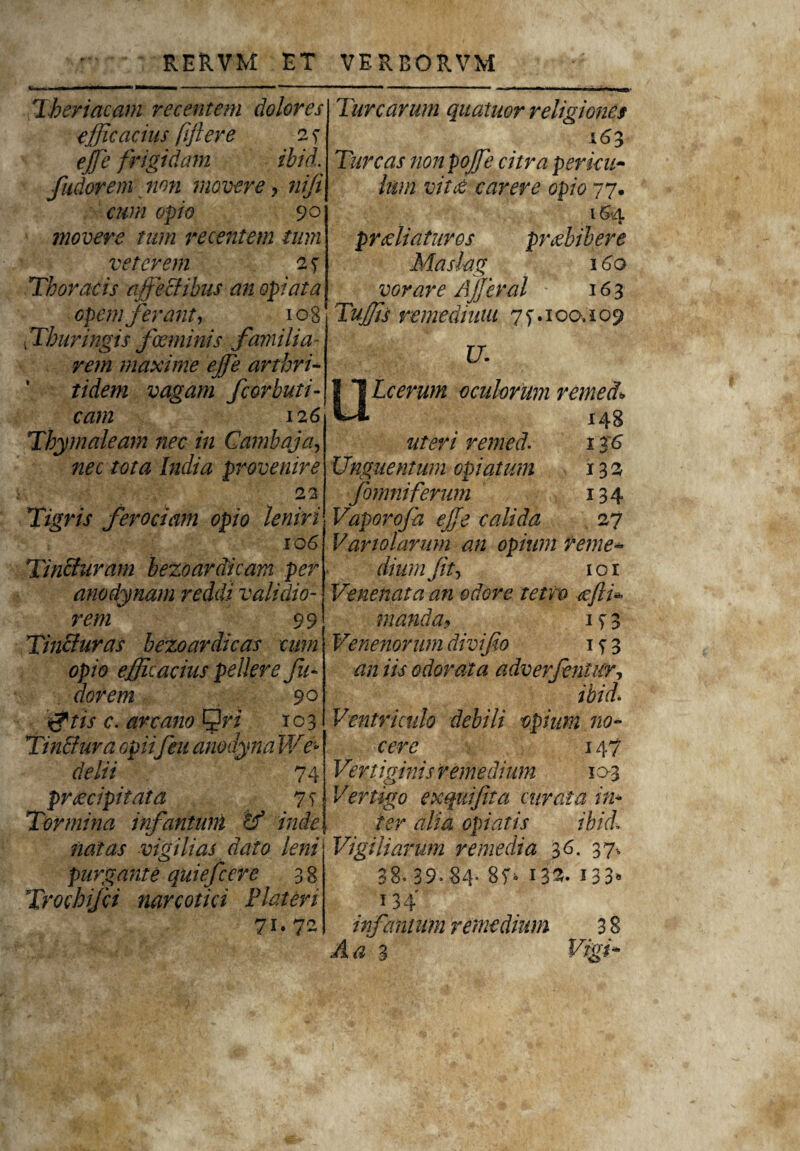 RERVM ET VERBORVM
Theriacam recentem dolores
efficacius ſiſtere 25
eſſe frigidam ibid.
ſudorem non movere, niſi
cum opio 90
movere tum recentem tum
veterem 25
Thoracis affectibus an opiata
opem ferant, 108
Thuringis fœminis familia-
rem maxime eſſe arthri-
tidem vagam ſcorbuti-
cam 126
Thymaleam nec in Cambaja,
nec tota India provenire
22
Tigris ferociam opio leniri
106
Tincturam bezoardicam per
anodynam reddi validio-
rem 99
Tincturas bezoardicas cum
opio efficacius pellere ſu-
dorem 90
&tis c. arcano ri 103
Tinctura opii ſeu anodyna We-
delii 74
præcipitata 75
Tormina infantum & inde
natas vigilias dato leni
purgante quieſcere 38
Trochiſci narcotici Plateri
71. 72
Turcarum quatuor religiones
163
Turcas non poſſe citra pericu-
lum vitæ carere opio 77.
164
præliaturos præbibere
Maslag 160
vorare Aſſeral 163
Tuſſis remedium 75.100.109
U.
ULcerum oculorum remed.
148
uteri remed. 136
Unguentum opiatum 132
ſomniferum 134
Vaporoſa eſſe calida 27
Variolarum an opium reme-
dium ſit, 101
Venenata an odore tetro æſti-
manda, 153
Venenorum diviſio 153
an iis odorata adverſentur,
ibid.
Ventriculo debili opium no-
cere 147
Vertiginis remedium 103
Vertigo exquiſita curata in-
ter alia opiatis ibid.
Vigiliarum remedia 36. 37.
38. 39. 84. 85. 132. 133.
134
infantum remedium 38
Aa 3 Vigi-